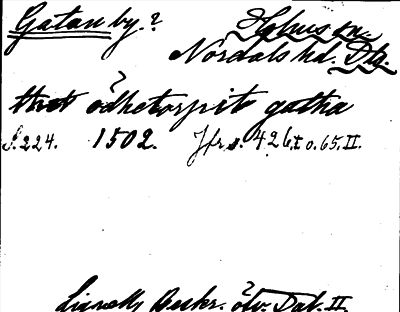 Gatan by.? Holms sn.
Nordals hd. Dls.
thet ödhetorpit gatha
S. 224. 1502. Jfr s. 426. t o. 65. II.
Lignells Beskr. öfv. Dal. II